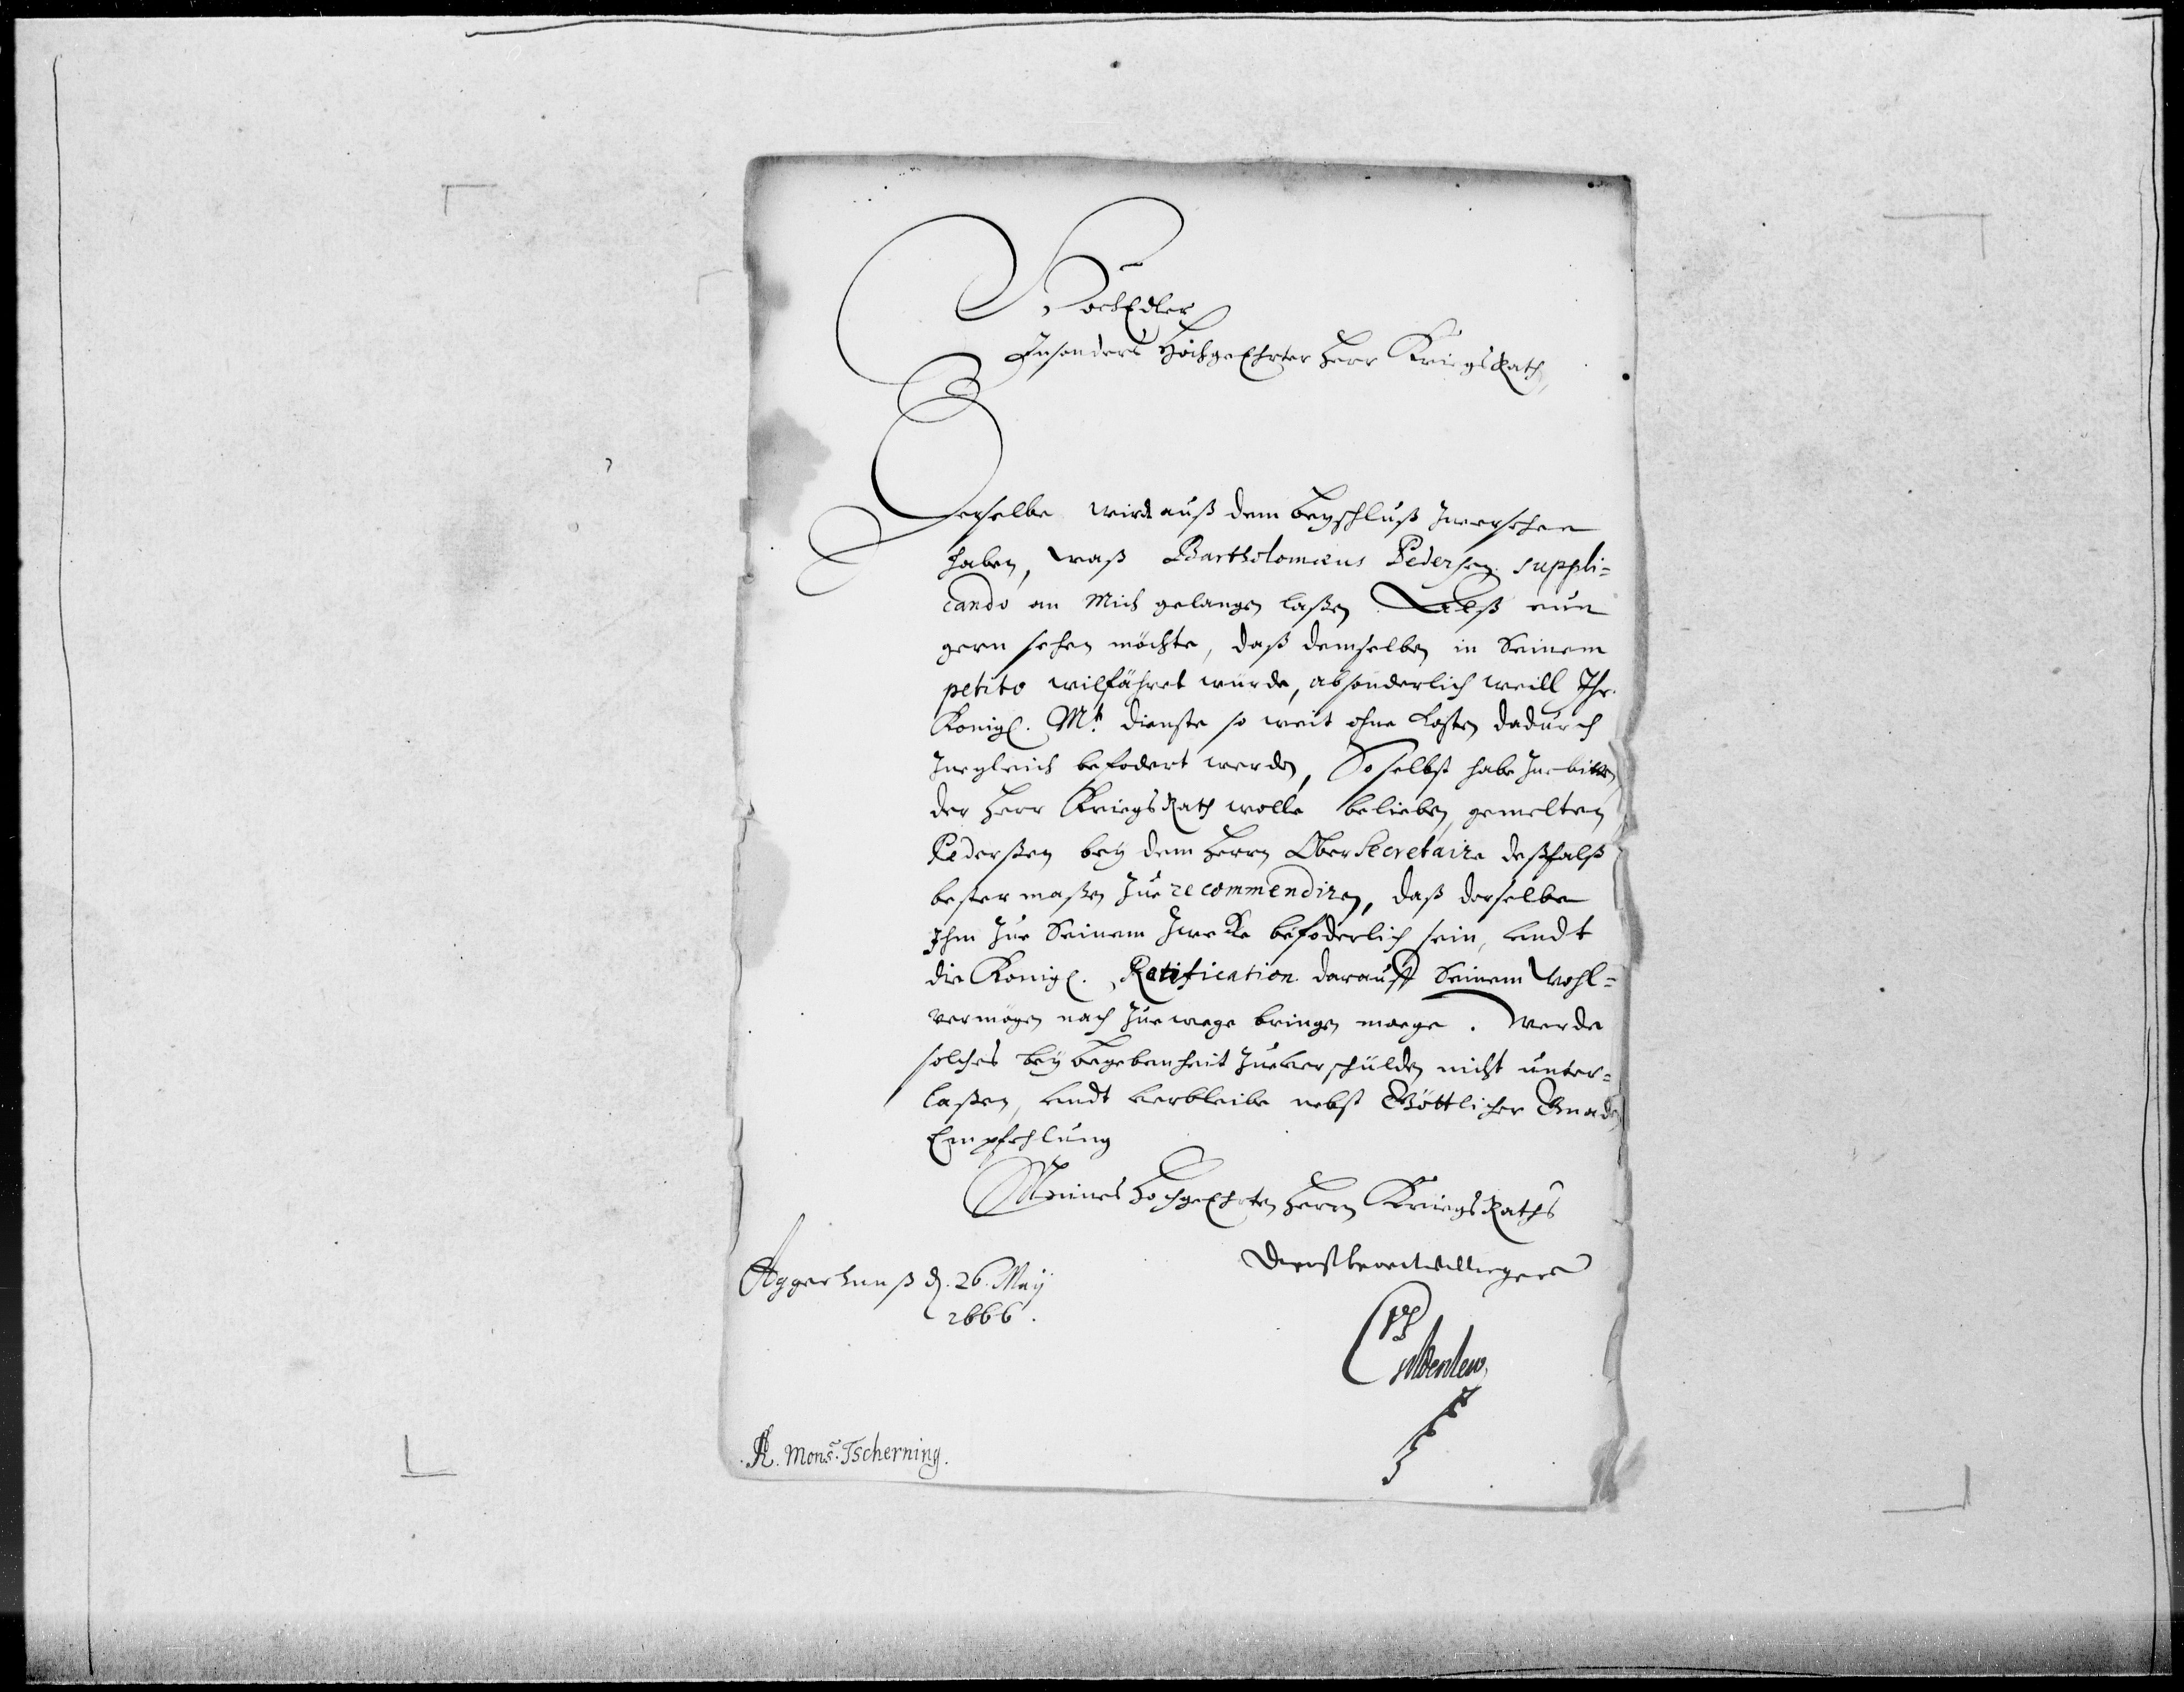 HochEdler
Insonders HochgeEhrter Herr KriegsRath,
Derselbe wird auß dem beyschluß zuersehen
haben, waß Bartholomæus Pedersen suppli=
cando an Mich gelangen laßen. Alß nun
gern sehen möchte, daß demselben in Seinem
petito wilfähret würde, absonderlich weill Ihr.
Königl. Mtt. dienste so weit ohne kosten dadurch
zuegleich befodert werden, So selbst habe zuebitten
der Herr KriegsRath wolle belieben, gemelten
Pederßen bey dem Herrn OberSecretaire deßfalß
bester maßen zue recommendiren, daß derselbe
Ihm zue Seinem Zwecke beföderlich sein, undt
die Königl. Ratification darauff Seinem Wohl=
vermögen nach zuewege bringen moege. Werde
solches bey begebenheit zueverschülden nicht unter=
laßen, undt verbleibe nebst Göttlicher Gnaden
Empfehlung
Meines HochgeEhrten Herrn KriegsRaths
Dienstbereitwilligster
VF
Guldenlew
Aggerhuuß d. 26. Maij
1666.
A. Mons. Tscherning.